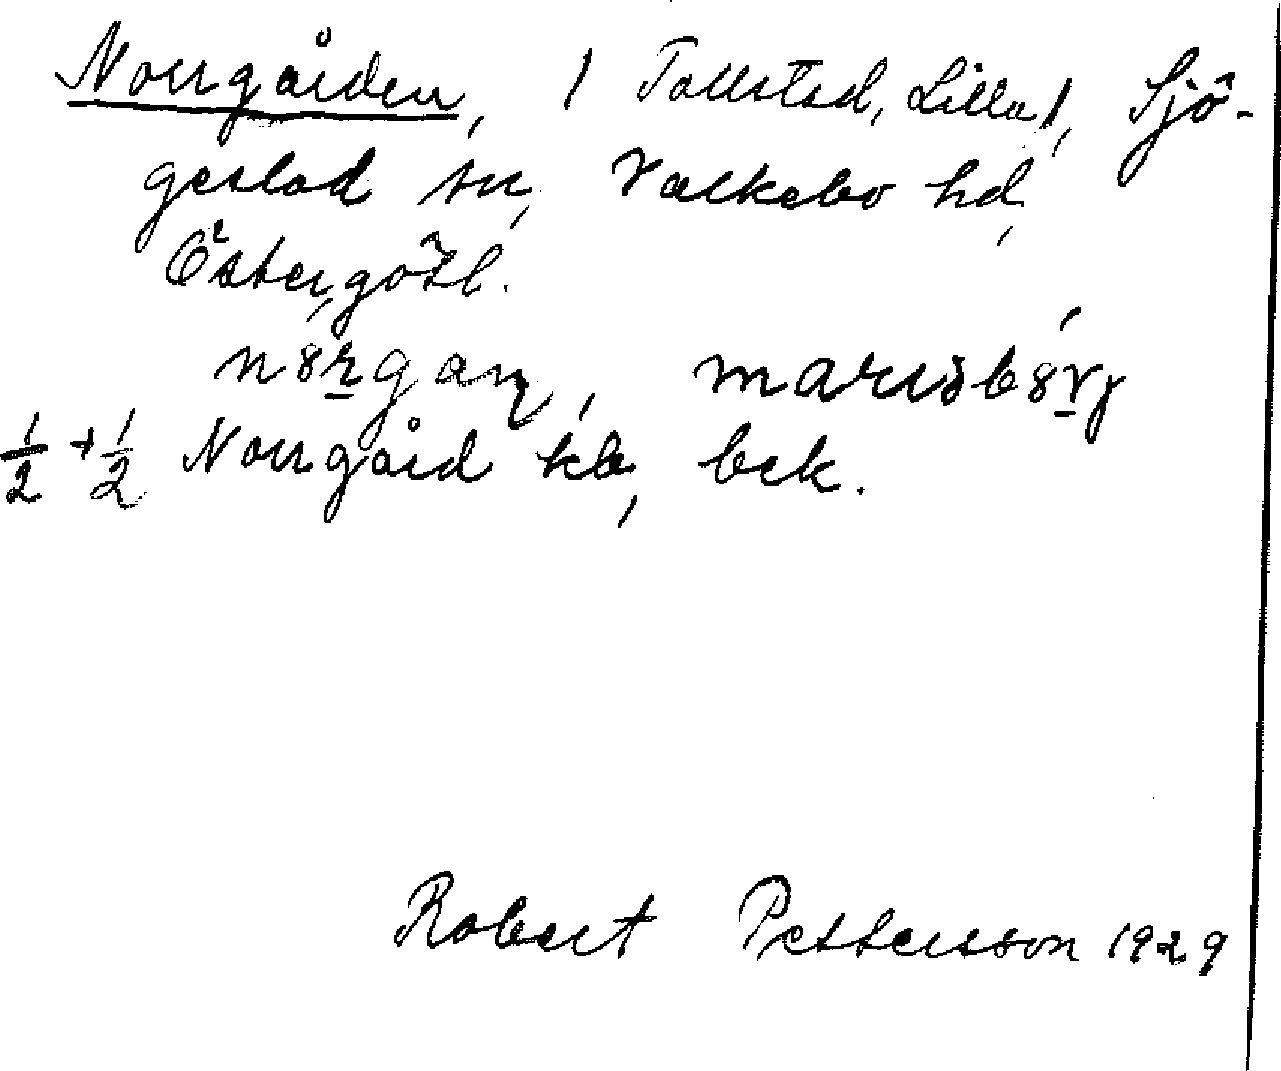 Norrgården, / Tollstad, Lilla/, Sjö-
gestad sn, Valkebo hd,
Östergötl.
½ + ½ Norrgård kb, bek.
Robert Pettersson 1929